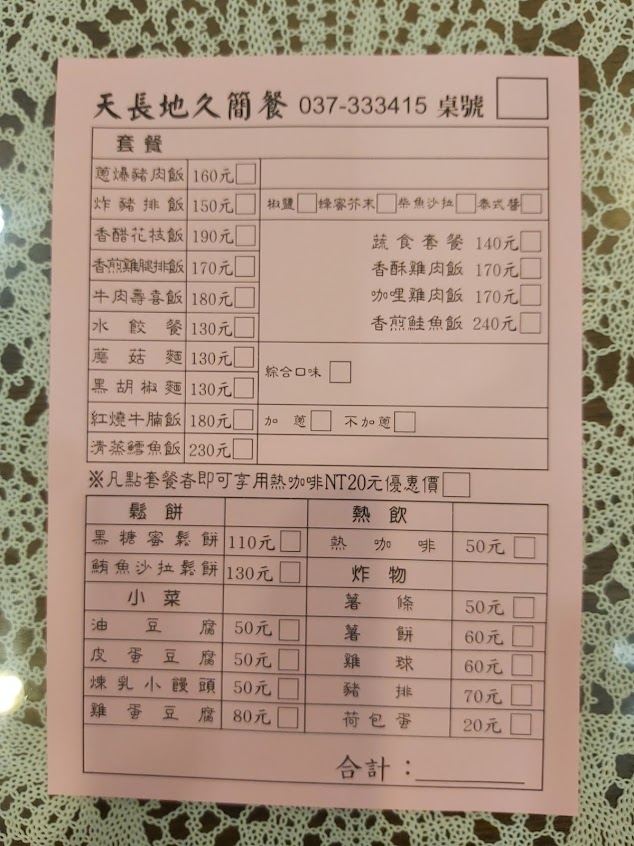 天長地久簡餐 037-333415 桌號
套餐
蔥爆豬肉飯 160元
炸豬排飯 150元 椒鹽 蜂蜜芥末 柴魚沙拉 泰式醬
香醋花枝飯 190元
香煎雞腿排飯 170元
牛肉壽喜飯 180元
水餃餐 130元
蔬食套餐 140元
香酥雞肉飯 170元
咖哩雞肉飯 170元
香煎鮭魚飯 240元
蘑菇麵 130元
黑胡椒麵 130元
綜合口味
紅燒牛腩飯 180元 加蔥 不加蔥
清蒸鱈魚飯 230元
※凡點套餐者即可享用熱咖啡NT20元優惠價
鬆餅
黑糖蜜鬆餅 110元
鮪魚沙拉鬆餅 130元
小菜
油豆腐 50元
皮蛋豆腐 50元
煉乳小饅頭 50元
雞蛋豆腐 80元
熱飲
熱咖啡 50元
炸物
薯條 50元
薯餅 60元
雞球 60元
豬排 70元
荷包蛋 20元
合計：